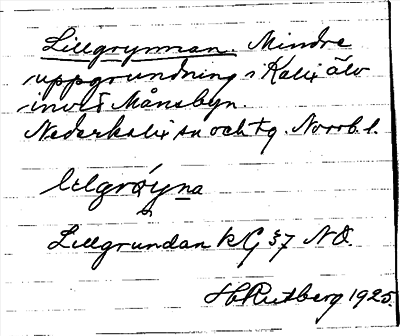 Lillgrynnan. Mindre
uppgrundning i Kalix älv
invid Månsbyn.
Nederkalix sn och tg. Norrb. l.
lılgrøyna
Lillgrundan kG 37 NO.
H Rutberg 1925.